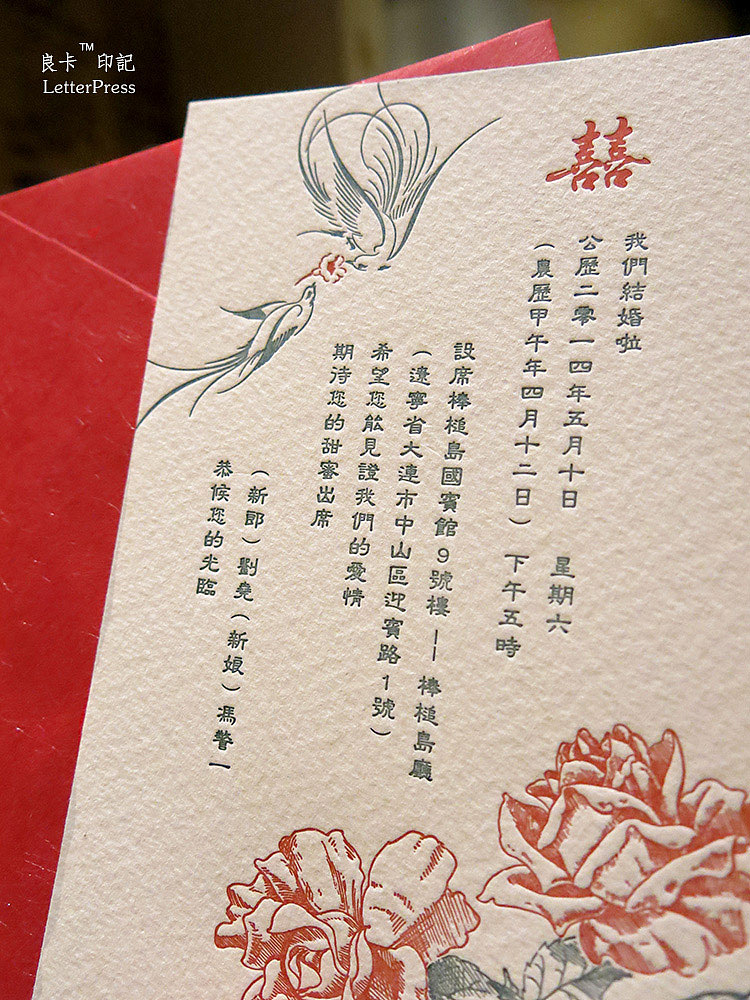 良卡™印記
LetterPress
囍
我們結婚啦
公歷二零一四年五月十日 星期六
(農歷甲午年四月十二日) 下午五時
設席棒槌島國賓館9號樓 — 棒槌島廳
(遼寧省大連市中山區迎賓路1號)
希望您能見證我們的愛情
期待您的甜蜜出席
(新郎)劉堯(新娘)馮警一
恭候您的光臨